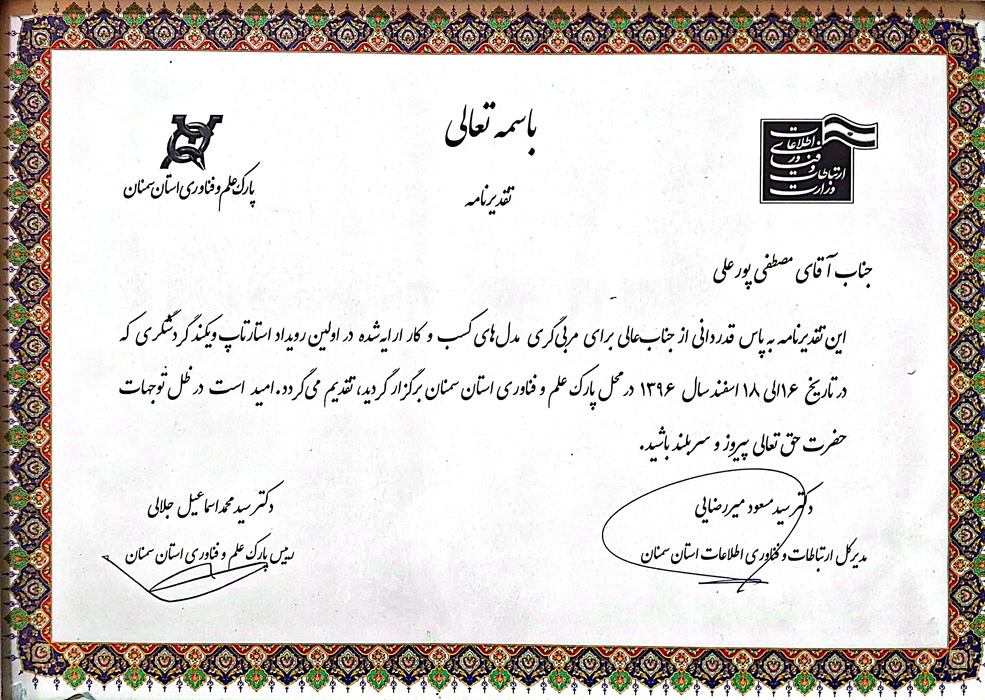 باسمه تعالی
وزارت
ارتباطات
و
فناوری
اطلاعات
پارک علم و فناوری استان سمنان
تقدیرنامه
جناب آقای مصطفی پورعلی
این تقدیرنامه به پاس قدردانی از جناب‌عالی برای مربی‌گری مدل‌های کسب و کار ارایه‌شده در اولین رویداد استارتاپ ویکند گردشگری که
در تاریخ ۱۶ الی ۱۸ اسفند سال ۱۳۹۶ در محل پارک علم و فناوری استان سمنان برگزار گردید، تقدیم می‌گردد. امید است در ظل توجهات
حضرت حق تعالی پیروز و سربلند باشید.
دکتر سید مسعود میررضایی
دکتر سید محمد اسماعیل جلالی
مدیرکل ارتباطات و فناوری اطلاعات استان سمنان
رییس پارک علم و فناوری استان سمنان